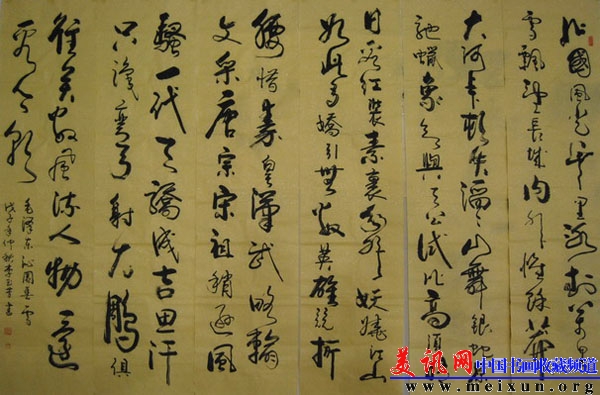 北國風光千里冰封萬里
雪飄望長城内外惟餘莽
大河上下頓失滔々山舞銀蛇原
馳蠟象欲與天公試比高須晴
日看红裝素裹分外妖嬈江山
如此多嬌引無數英雄競折
腰惜秦皇漢武略輸
文采唐宗宋祖稍遜風
騷一代天驕成吉思汗
只識彎弓射大鵰俱
往矣數風流人物還
看今朝
毛澤東沁園春雪
戊子年仲秋李玉書
美讯网 中国书画收藏频道
www.meixun.org